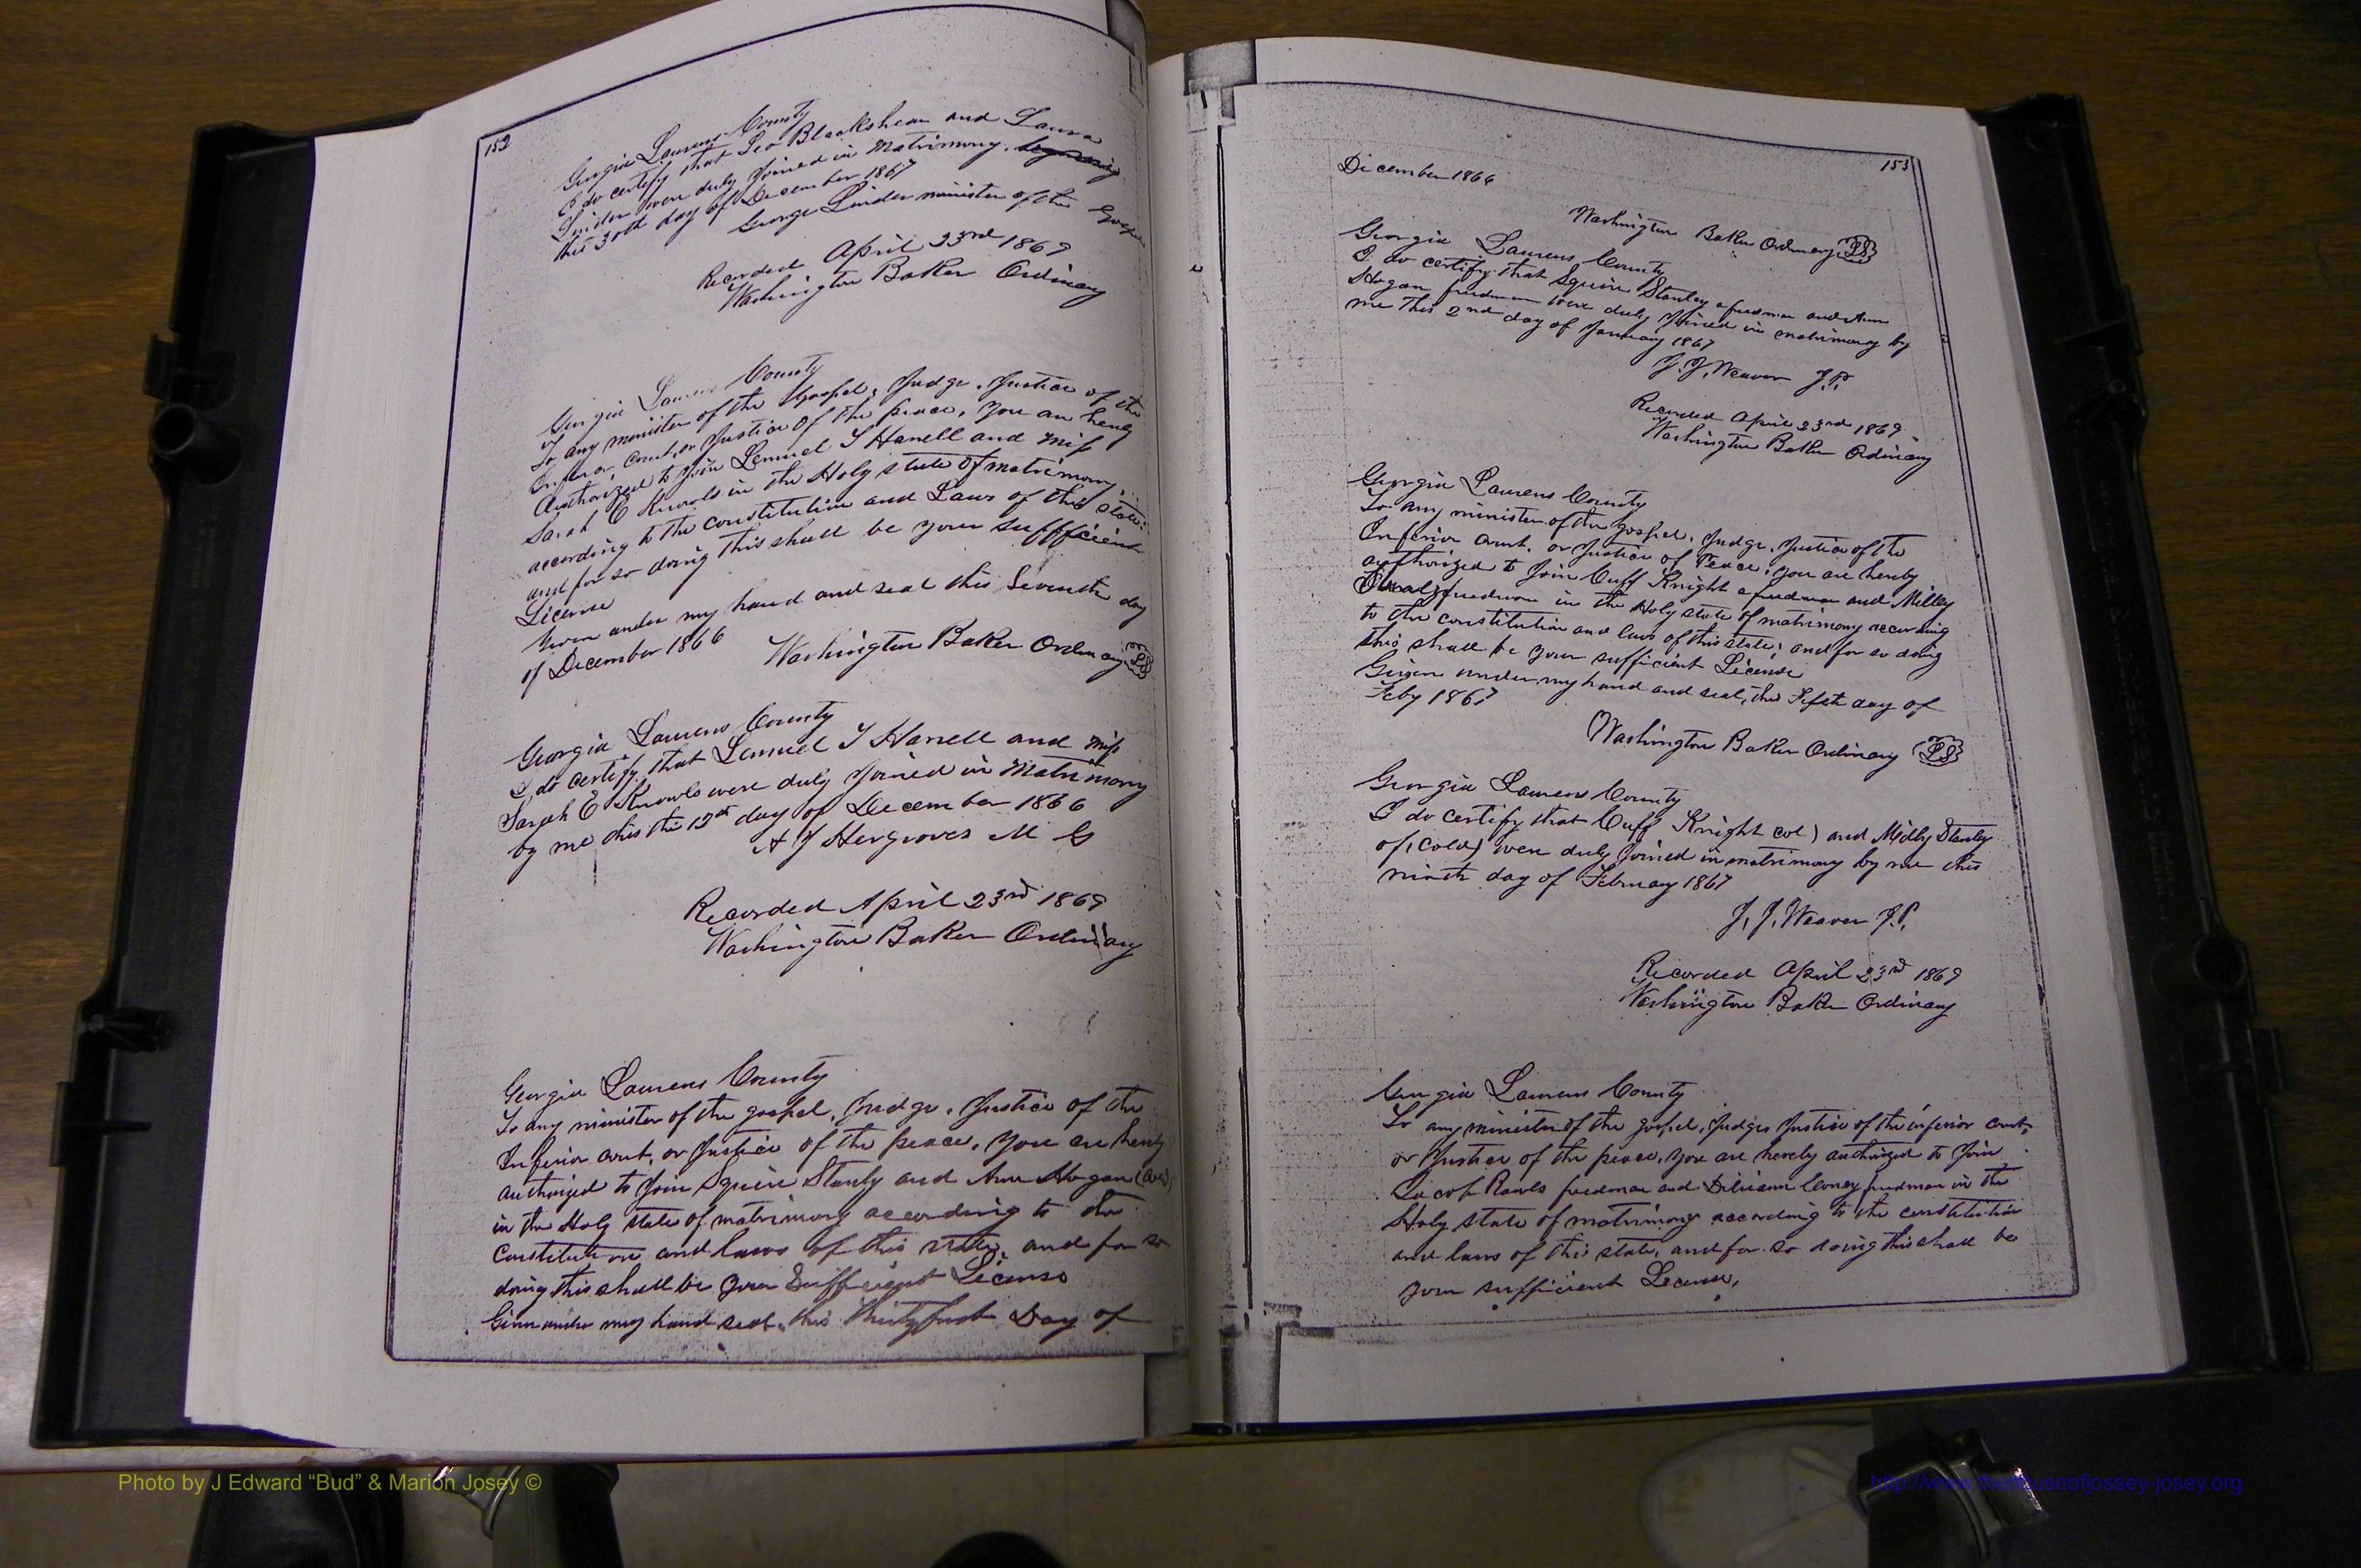 152
Georgia Laurens County
I do certify that Geo Blackshear and Laura
Linder were duly Joined in Matrimony.
this 30th day of December 1867
George Linder minister of the Gospel
Recorded April 23rd 1869
Washington Baker Ordinary
Georgia Laurens County
To any minister of the Gospel, Judge, Justice of the
Inferior Court, or Justice of the peace, You are hereby
Authorized to Join Lemuel T Harrell and Miss
Sarah E Knowls in the Holy state of matrimony,
according to the constitution and Laws of this State:
and for so doing this shall be your suffficient
License
Given under my hand and seal this Seventh day
of December 1866
Washington Baker Ordinary LS
Georgia Laurens County
I do certify that Lemuel T Harrell and Miss
Sarah E Knowls were duly Joined in Matrimony
by me this the 13th day of December 1866
A J Hergroves M G
Recorded April 23rd 1869
Washington Baker Ordinary
Georgia Laurens County
To any minister of the gospel, Judge, Justice of the
Inferior court, or Justice of the peace, You are hereby
authorized to Join Squire Stanly and Ann Hogan
in the Holy state of matrimony according to the
Constitution and laws of this state, and for so
doing this shall be your Sufficient License
Given under my hand seal, this thirtyfirst Day of
153
December 1866
Washington Baker Ordinary LS
Georgia Laurens County
I do certify that Squire Stanley a freedman and Ann
Hogan freedman were duly Joined in matrimony by
me This 2nd day of January 1867
J. J. Weaver J.P.
Recorded April 23rd 1869
Washington Baker Ordinary
Georgia Laurens County
To any minister of the gospel, Judge, Justice of the
Inferior court, or Justice of Peace, you are hereby
authorized to Join Cuff Knight a freedman and Milley
freedman in the Holy state of matrimony according
to the constitution and laws of this state; and for so doing
this shall be your sufficient License
Given under my hand and seal, the Fifth day of
Feby 1867
Washington Baker Ordinary LS
Georgia Laurens County
I do certify that Cuff Knight col) and Milly Stanley
of (Cold) were duly Joined in matrimony by me this
ninth day of February 1867
J. J. Weaver J.P.
Recorded April 23rd 1869
Washington Baker Ordinary
Georgia Laurens County
To any minister of the gospel, Judge Justice of the inferior court,
or Justice of the peace, you are hereby authorized to Join
Jacob Rawls freedman and Coney freedman in the
Holy state of matrimony according to the constitution
and laws of this state, and for so doing this shall be
your sufficient License,
Photo by J Edward “Bud” & Marion Josey ©
http://www.thehouseofjossey-josey.org